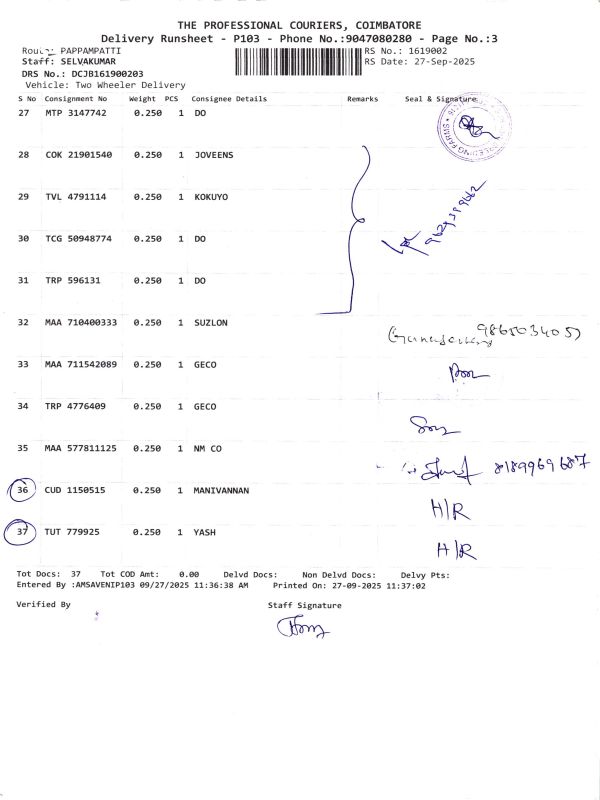 THE PROFESSIONAL COURIERS, COIMBATORE
Delivery Runsheet - P103 - Phone No.:9047080280 - Page No.:3
Route: PAPPAMPATTI RS No.: 1619002
Staff: SELVAKUMAR RS Date: 27-Sep-2025
DRS No.: DCJB161900203
Vehicle: Two Wheeler Delivery
S No Consignment No Weight PCS Consignee Details Remarks Seal & Signature
27 MTP 3147742 0.250 1 DO
28 COK 21901540 0.250 1 JOVEENS
29 TVL 4791114 0.250 1 KOKUYO
30 TCG 50948774 0.250 1 DO
31 TRP 596131 0.250 1 DO
32 MAA 710400333 0.250 1 SUZLON
33 MAA 711542089 0.250 1 GECO
34 TRP 4776409 0.250 1 GECO
35 MAA 577811125 0.250 1 NM CO 8189969687
36 CUD 1150515 0.250 1 MANIVANNAN H/R
37 TUT 779925 0.250 1 YASH H/R
Tot Docs: 37 Tot COD Amt: 0.00 Delvd Docs: Non Delvd Docs: Delvy Pts:
Entered By :AMSAVENIP103 09/27/2025 11:36:38 AM Printed On: 27-09-2025 11:37:02
Verified By Staff Signature